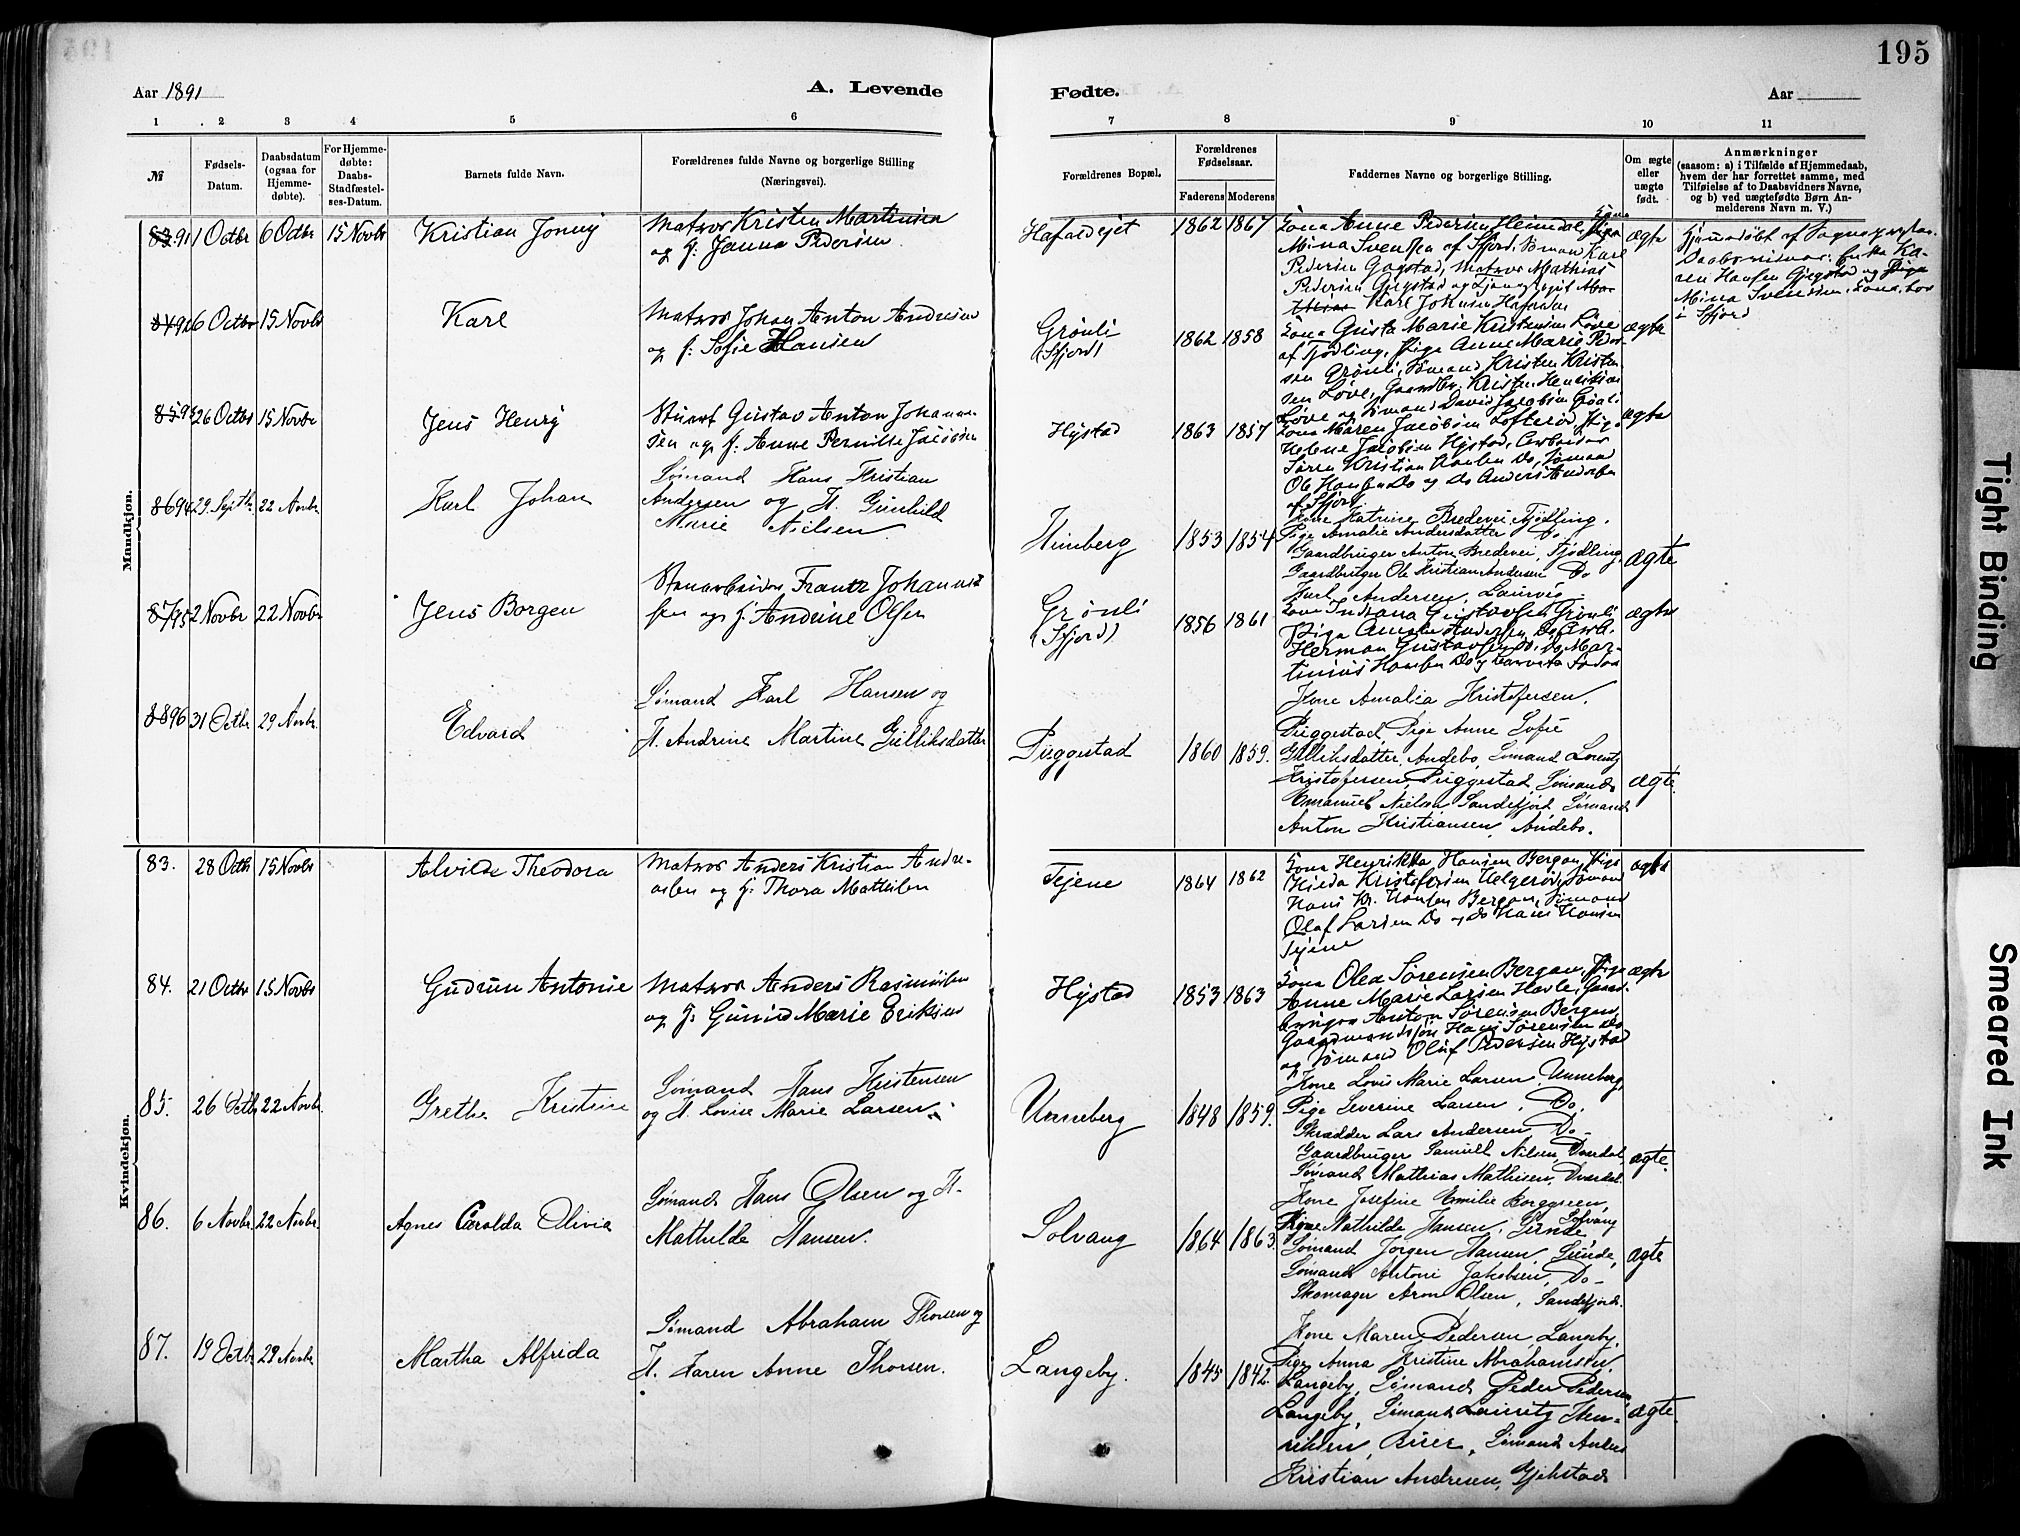 195
Aar 1891
A. Levende
Fødte.
Aar
1 2 3 4 5 6 7 8 9 10 11
№
Fødsels-
Datum.
Daabsdatum
(ogsaa for
Hjemme-
døbte).
For Hjemme-
døbte:
Daabs-
Stadfæstel-
ses-Datum.
Barnets fulde Navn.
Forældrenes fulde Navne og borgerlige Stilling
(Næringsvei).
Forældrenes Bopæl.
Forældrenes
Fødselsaar.
Faderens Moderens
Faddernes Navne og borgerlige Stilling.
Om ægte
eller
uægte
født.
Anmærkninger
(saasom: a) i Tilfælde af Hjemmedaab,
hvem der har forrettet samme, med
Tilføielse af to Daabsvidners Navne,
og b) ved uægtefødte Børn An-
melderens Navn m. V.)
Mandkjøn.
83 91 1 Octbr 6 Octbr 15 Novbr Kristian Jonny
Matros Kristen Martinsen
og H: Janna Pedersen
1862 1867
Kona Anne Pedersen Heimdal, Pige
Mina Svensen af Sfjord, Sømand Karl
Pedersen Gogstad, Matros Mathias
Karl Johnsen
ægte
Hjemmedøbt af
Mina Svendsen
i Sfjord
6 Octbr 15 Novbr Karl
Matros Johan Anton Andersen
og H: Sofie Hansen
Grønli
(Sfjord)
1862 1858
Kona Gusta Marie Kristensen Løve
af Tjødling, Pige Anne Marie Peder-
sen Grønli, Sømand Kristen Kristen-
sen Løve, Gaardbr. Kristen Henriksen
Løve og Sømand David Jacobsen Grønli
ægte
26 Octbr 15 Novbr Jens Henry
Gustav Anton Johanne-
sen og H: Anne Pernille Jacobsen
Hystad
1863 1857
Kona Maren Jacobsen Lofterød, Pige
Helene Jacobsen Hystad, Arbeider
Søren Kristian Hansen Do, Sømand
Ole Hansen Do og Do Anders Andersen
af Sfjord
ægte
86 94 29. Septb. 22 Novbr. Karl Johan
Sømand Hans Kristian
Andersen og H. Gunhild
Marie Nielsen
Himberg
1853 1854
Kone Katrine Bredevei, Tjødling.
Pige Amalie Andersdatter Do.
Gaardbruger Anton Bredevei, Tjødling
Gaardbruger Ole Kristian Andersen Do
Karl Andersen, Laurvig
ægte
87 95 2 Novbr 22 Novbr Jens Borgen
Stenarbeider Frantz Johannes-
sen og H: Andrine Olsen
Grønli
(Sfjord)
1856 1861
Kona Indiana Gustavsen Grønli
Pige Amalie Andersen Do, Arb.
Herman Gustavsen Do, Do Mar-
tinius Hansen Do
ægte
88 96 31 Octbr 29 Novbr. Edvard
Sømand Karl Hansen og
H. Andrine Martine Gulliksdatter
Puggestad
1860 1859.
Kone Amalia Kristofersen.
Puggestad, Pige Anne Sofie
Gulliksdatter, Andebo, Sømand Lorentz
Kristofersen, Puggestad, Sømand
Emanuel Nielsen Sandefjord, Sømand
Anton Kristiansen, Andebo.
ægte
Kvindekjøn.
83. 28 Octb 15 Novbr Alvilde Theodora
Matros Anders Kristian Andre-
asen og H: Thora Mathilde
Tejene
1864 1862
Kona Henrikka Hansen Bergan, Pige
Hilda Kristofersen Helgerød, Sømand
Hans Kr. Hansen Bergan, Sømand
Olaf Larsen Do og Do Hans Hansen
Tejene
ægte
84. 21 Octbr 15 Novbr Gudrun Antonie
Matros Anders Rasmussen
og H: Gunild Marie Eriksen
Hystad
1853 1863
Kona Olea Sørensen Bergan, Pige
Anne Marie Larsen Havle, Gaard-
bruger Anton Sørensen Bergan
Gaardmandssøn Hans Sørensen Do
og Sømand Oluf Pedersen Hystad
ægte
85. 26 Octb 22 Novbr. Grethe Kristine
Sømand Hans Kristensen
og H. Lovise Marie Larsen
Unneberg
1848 1859.
Kone Lovis Marie Larsen, Unneberg,
Pige Severine Larsen. Do.
Skrædder Lars Andersen, Do
Gaardbruger Samuel Nilsen, Dverdal,
Sømand Mathias Mathisen, Dverdal
ægte
86. 6 Novbr. 22 Novbr. Agnes Carolda Olivia
Sømand Hans Olsen og H.
Mathilde Hansen.
Solvang
1864 1863.
Kone Josefine Emilie Borggreen, Solvang
Pige Mathilde Jansen, Sunde
Sømand Jørgen Hansen Sunde,
Sømand Antoni Jakobsen, Do-
Skomager Aron Olsen, Sandefjord.
ægte
87. 19 Octb. 29 Novbr. Martha Alfrida
Sømand Abraham Thorsen og
H. Karen Anne Thorsen.
Langeby.
1845 1842.
Kone Maren Pedersen Langeby.
Pige Anna Kristine Abrahamsen,
Langeby, Sømand Peder Pedersen
Langeby, Sømand Lauritz Hen-
riksen, Buer, Sømand Anders
Kristian Andresen, Gjekstad
ægte
Tight Binding
Smeared Ink